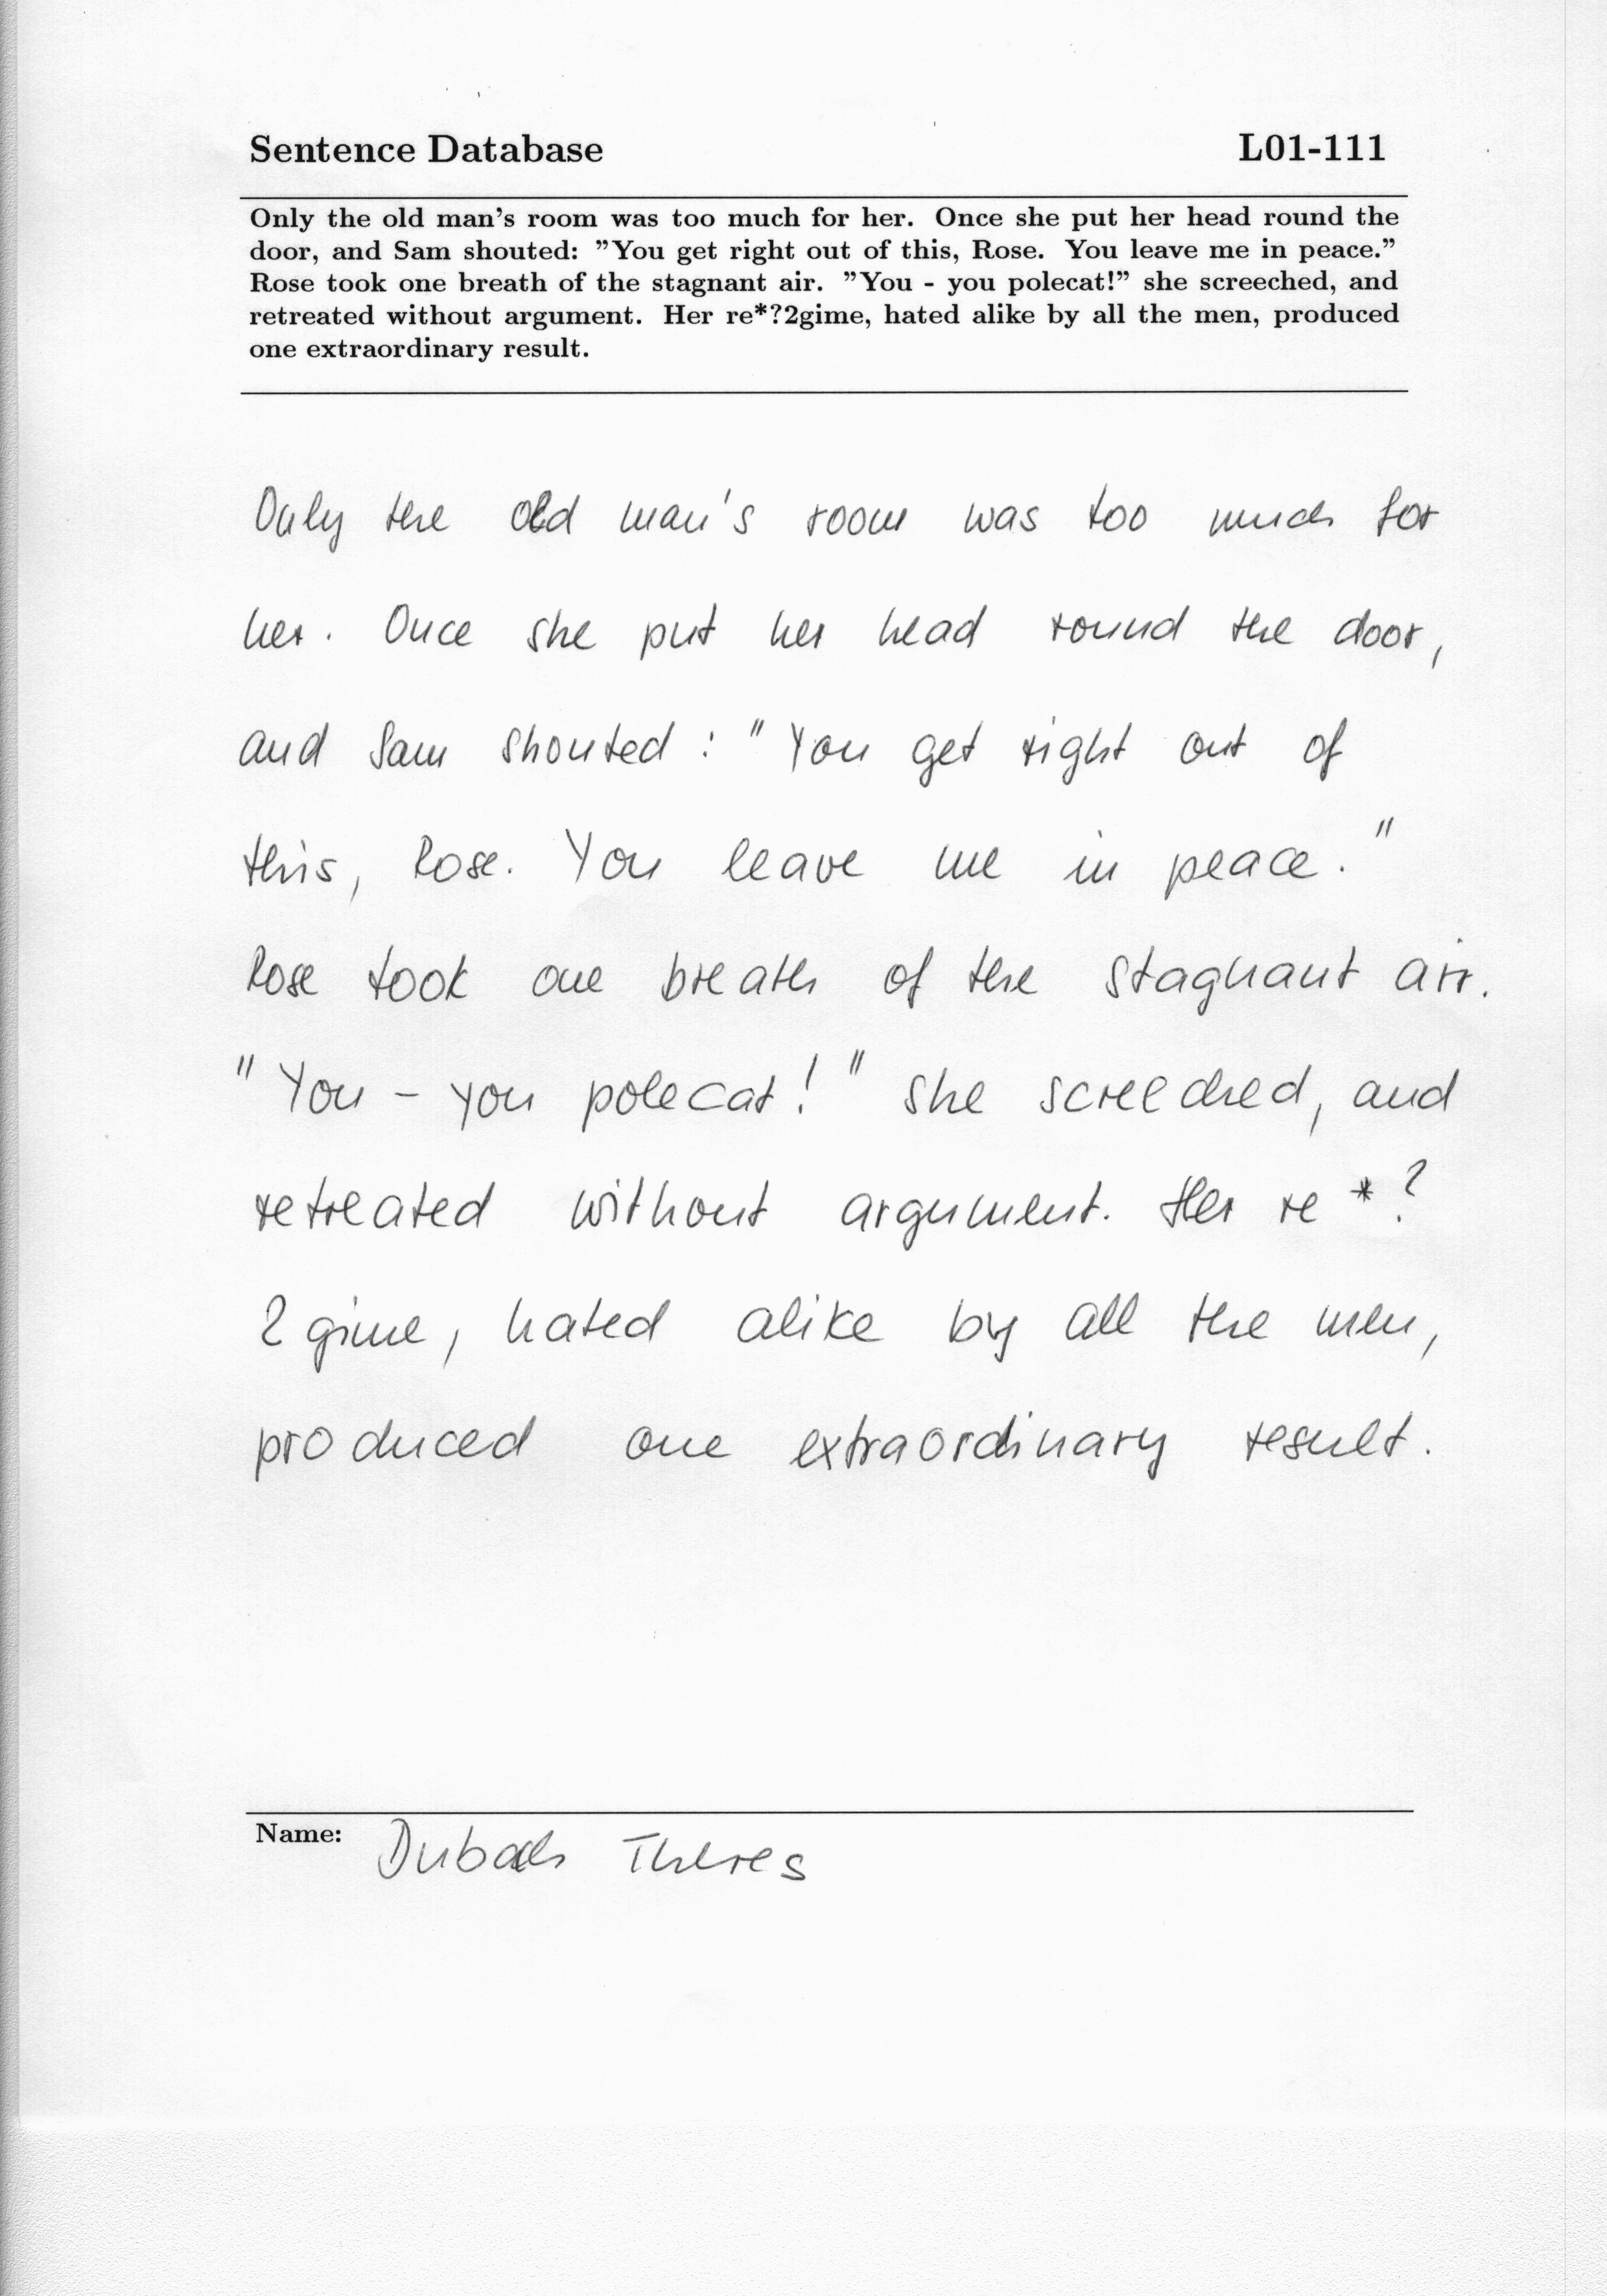 Sentence Database L01-111
Only the old man's room was too much for her. Once she put her head round the
door, and Sam shouted: "You get right out of this, Rose. You leave me in peace."
Rose took one breath of the stagnant air. "You - you polecat!" she screeched, and
retreated without argument. Her re*?2gime, hated alike by all the men, produced
one extraordinary result.
Only the old man's room was too much for
her. Once she put her head round the door,
and Sam shouted : "You get right out of
this, Rose. You leave me in peace."
Rose took one breath of the stagnant air.
"You - you polecat!" she screeched, and
retreated without argument. Her re*?
2gime, hated alike by all the men,
produced one extraordinary result.
Name: Dubach Theres